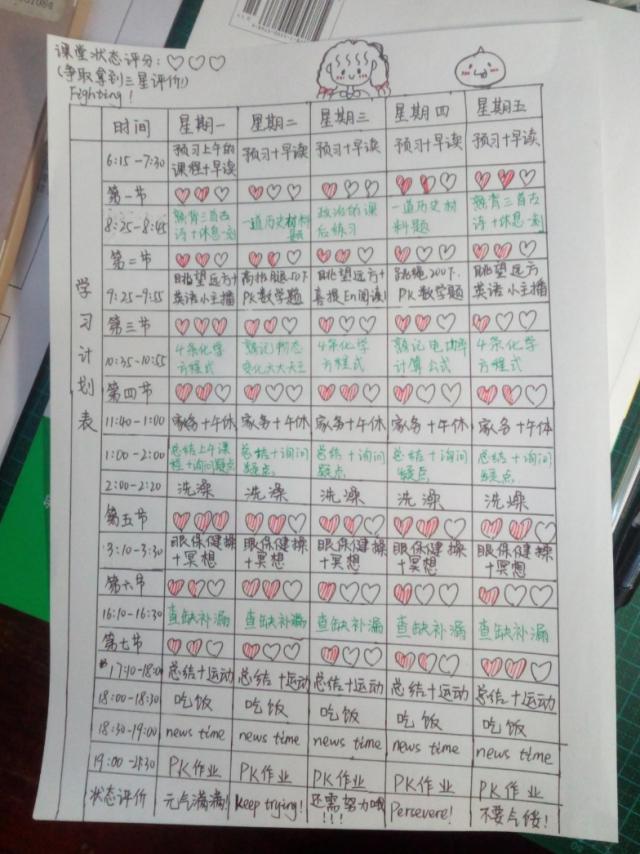 课堂状态评分：♡♡♡
(争取拿到三星评价!)
Fighting!
学习计划表
时间 星期一 星期二 星期三 星期四 星期五
6:15-7:30 预习上午的课程+早读 预习+早读 预习+早读 预习+早读 预习+早读
第一节
8:25-8:45 熟背三首古诗+休息一刻 一道历史材料题 政治的课后练习 一道历史材料题 熟背三首古诗+休息一刻
第二节
9:25-9:55 眺望远方+英语小主播 高抬腿50下 PK数学题 眺望远方+喜提En阅读! 跳绳200下, PK数学题 眺望远方 英语小主播
第三节
10:35-10:55 4条化学方程式 熟记物态变化 4条化学方程式 熟记电功率计算公式 4条化学方程式
第四节
11:40-1:00 家务+午休 家务+午休 家务+午休 家务+午休 家务+午休
1:00-2:00 总结上午课程+询问疑点 总结+询问疑点 总结+询问疑点 总结+询问疑点 总结+询问疑点
2:00-2:20 洗澡 洗澡 洗澡 洗澡 洗澡
第五节
3:10-3:30 眼保健操+冥想 眼保健操+冥想 眼保健操+冥想 眼保健操+冥想 眼保健操+冥想
第六节
16:10-16:30 查缺补漏 查缺补漏 查缺补漏 查缺补漏 查缺补漏
第七节
17:10-18:00 总结+运动 总结+运动 总结+运动 总结+运动 总结+运动
18:00-18:30 吃饭 吃饭 吃饭 吃饭 吃饭
18:30-19:00 news time news time news time news time news time
19:00-21:30 PK作业 PK作业 PK作业 PK作业 PK作业
状态评价 元气满满! keep trying! 还需努力哦!!! Persevere! 不要气馁!